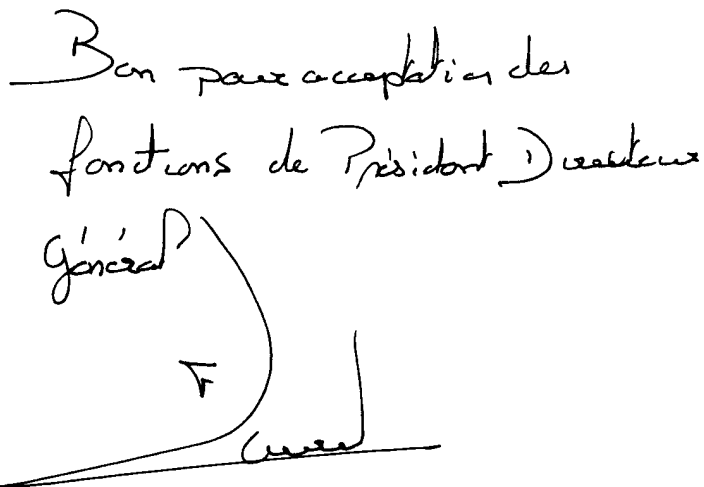 Bon pour acceptation des
fonctions de Président Directeur
Général